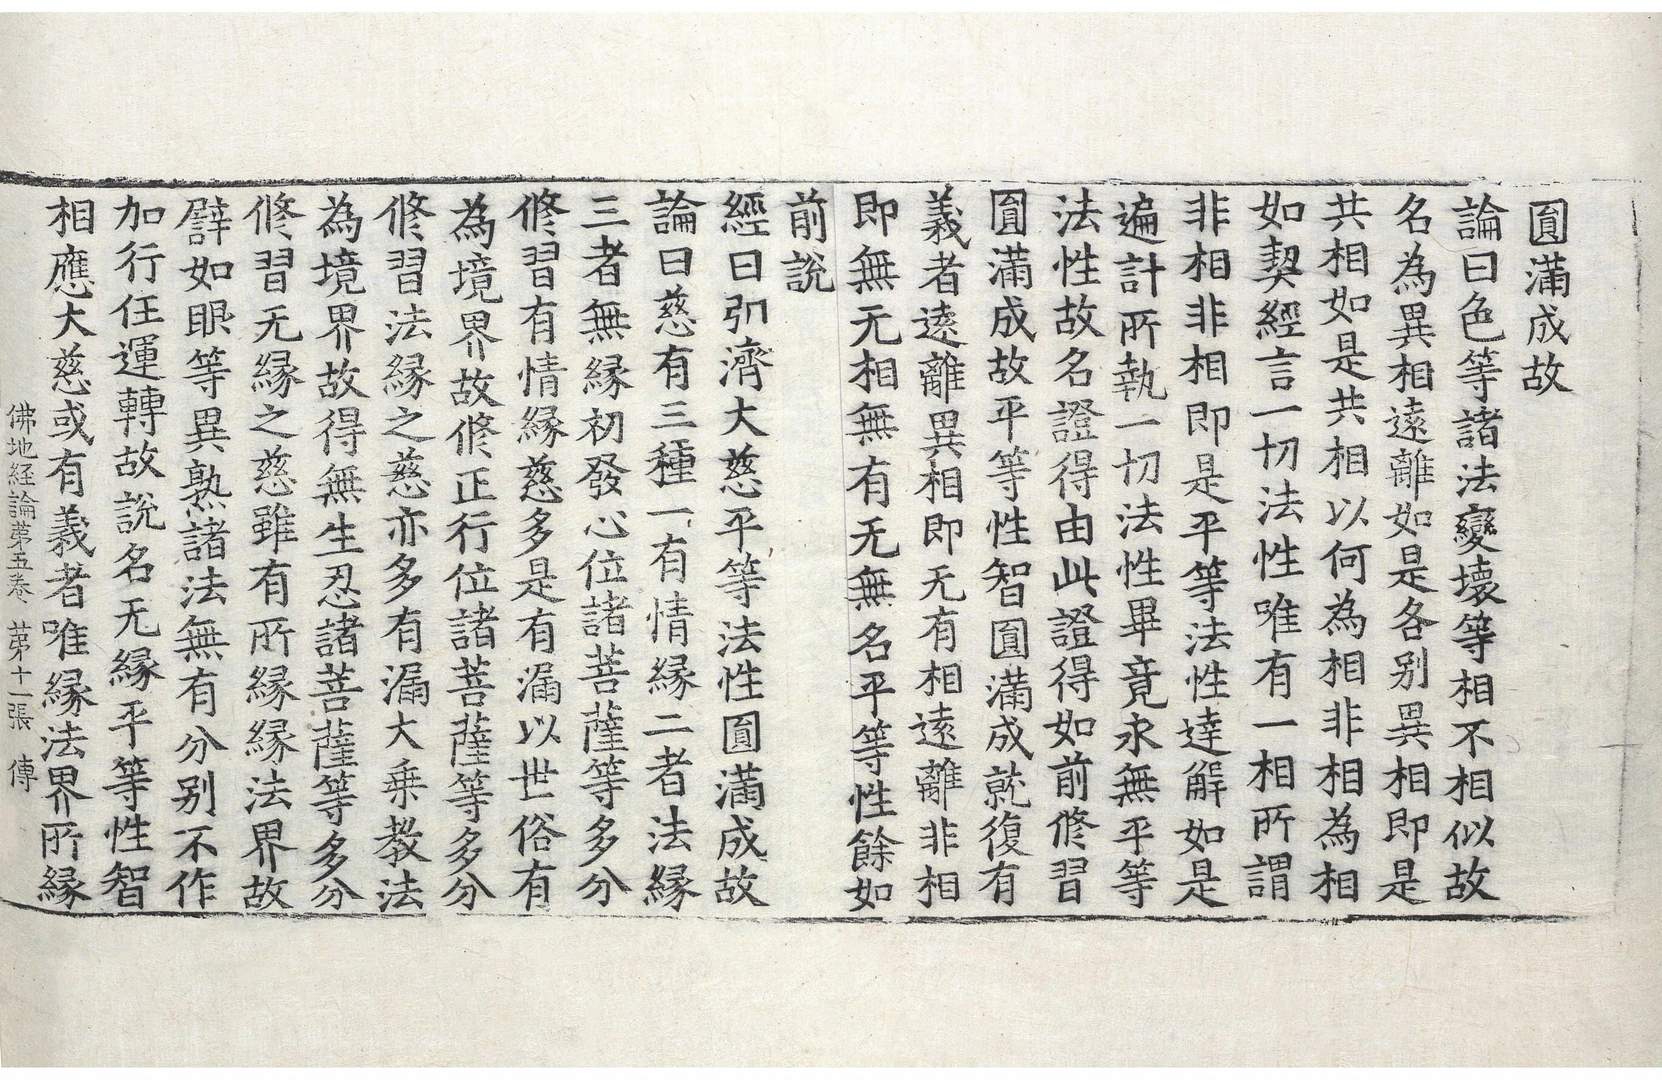 圎滿成故
論曰色等諸法變壞等相不相似故
名為異相遠離如是各别異相即是
共相如是共相以何為相非相為相
如契經言一切法性唯有一相所謂
非相非相即是平等法性達解如是
遍計所執一切法性畢竟永無平等
法性故名證得由此證得如前修習
圎滿成故平等性智圎滿成就復有
義者遠離異相即无有相遠離非相
即無无相無有无無名平等性餘如
前說
經曰引濟大慈平等法性圎滿成故
論曰慈有三種一有情緣二者法緣
三者無緣初發心位諸菩薩等多分
修習有情緣慈多是有漏以世俗有
為境界故修正行位諸菩薩等多分
修習法緣之慈亦多有漏大乗教法
為境界故得無生忍諸菩薩等多分
修習无緣之慈雖有所緣緣法界故
譬如眼等異熟諸法無有分别不作
加行任運轉故說名无緣平等性智
相應大慈或有義者唯緣法界所緣
佛地経論苐五卷 苐十一張 傳